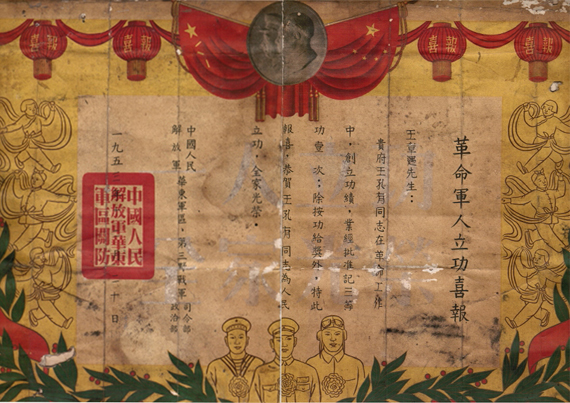 報喜
報喜
報喜
報喜
革命軍人立功喜報
先生：
貴府王孔有同志在革命工作
中，創立功績，業經批准記二等
功壹次：除按功給獎外，特此
報喜，恭賀王孔有同志為人民
立功，全家光榮。
中國人民
解放軍
華東軍區，第三野戰軍
司令部
政治部
一九五 十 日
中國人民
解放軍華東
軍區關防